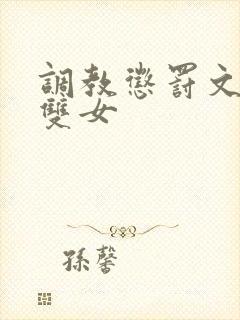 調教懲罰文
雙女
孫馨